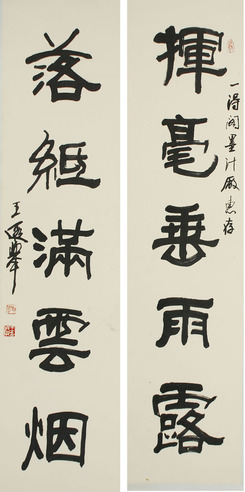 揮毫垂雨露
一得阁墨汁厰惠存
落紙滿雲烟
王遐舉